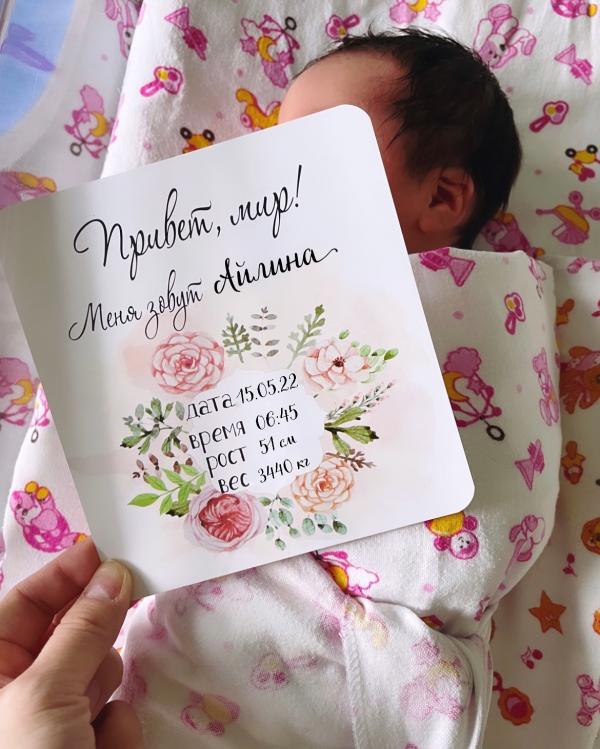 Привет, мир!
Меня зовут Айлина
дата 15.05.22
время 06:45
рост 51 см
вес 3440 кг